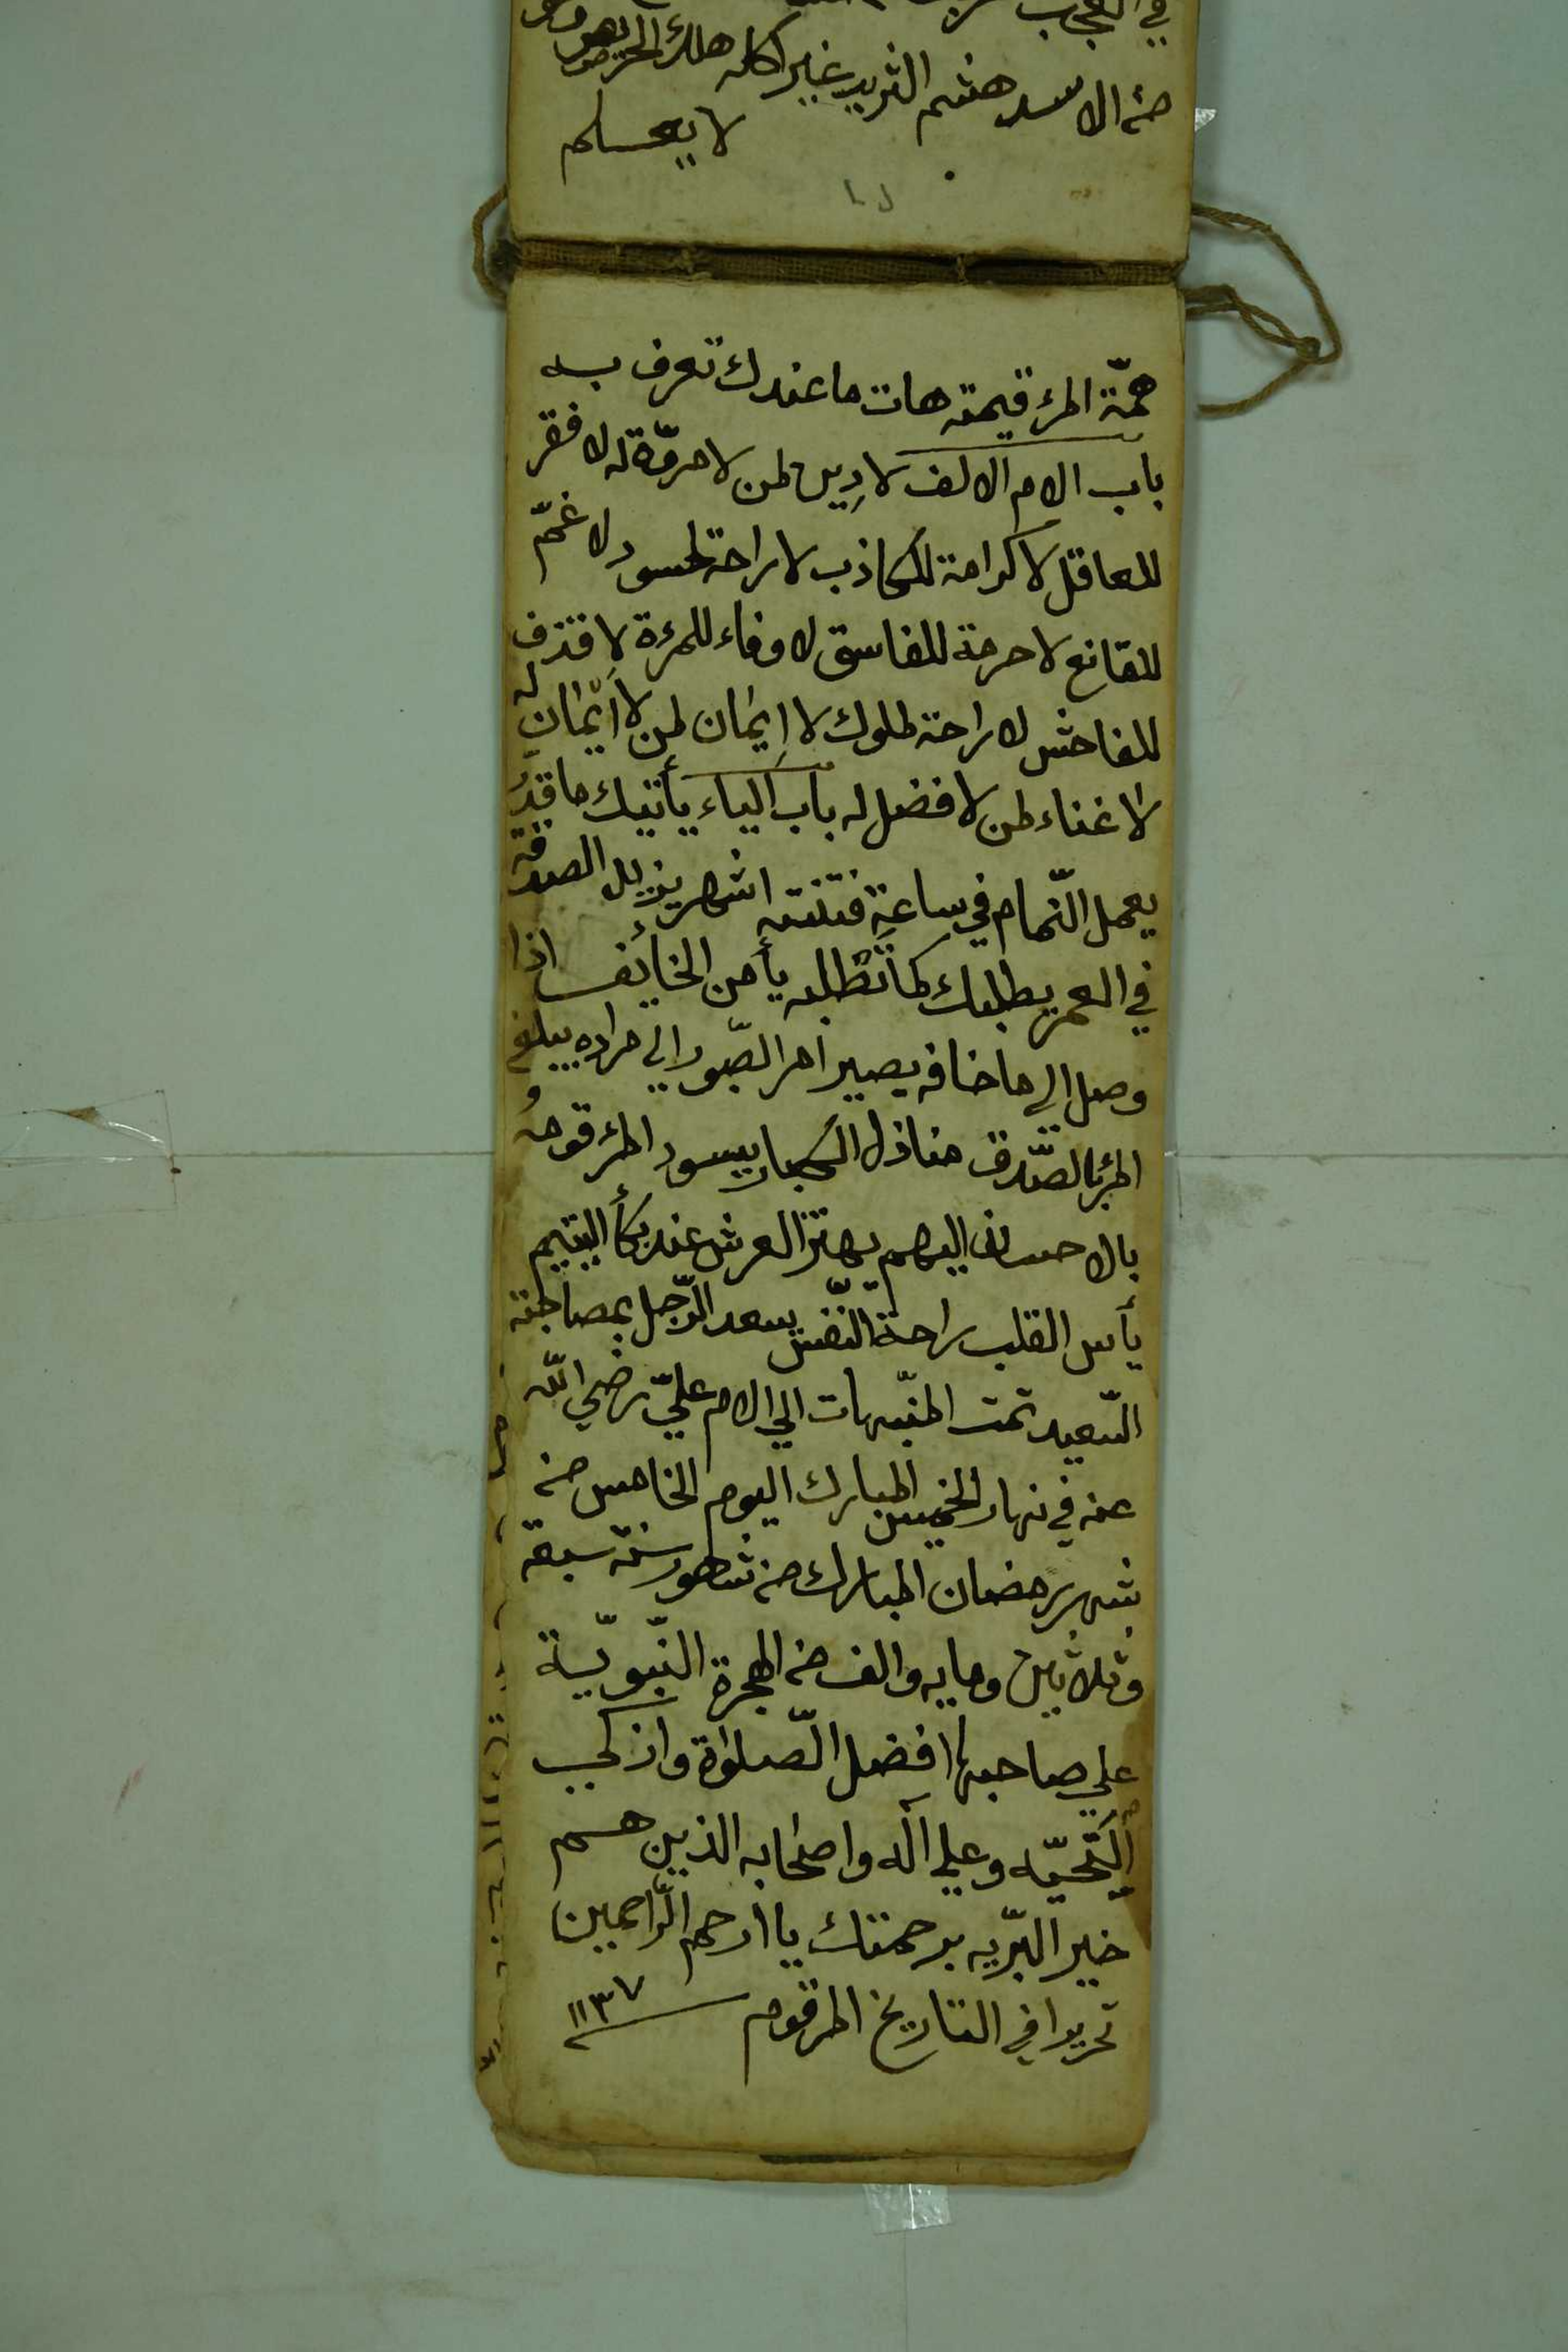 في العجب
من الاسد هشم الثريد غير اكله هلك الحريص وهو
لا يعلم
همّة المرء قيمته هات ما عندك تعرف به
باب الام الالف لا دين لمن لا مروّة له لا فقر
للعاقل لا كرامة للكاذب لا راحة لحسود لا غمّ
للقانع لا حرمة للفاسق لا وفاء للمرءة لا قذف
للفاحش لا راحة لملوك لا إيمان لمن لا أيمان له
لا غناء لمن لا فضل له باب الياء يأتيك ما قدّر
يعمل النّمام في ساعة فتنته اشهر يزيل الصدقة
في العمر يطلبك كما تطلبه يأمن الخائف اذا
وصل الى ما خافه يصير امر الصّبور الي مراده يبلغ
المرء بالصّدق منازل الكبار يسود المرء قومه
بالاحسان اليهم يهتز العرش عند بكأ اليتيم
يأس القلب راحة النّفس يسعد الرّجل بمصاحبة
السّعيد تمت المنبّهات الي الام عليّ رضي اللّه
عنه في نهار الخميس المبارك اليوم الخامس من
شهر رمضان المبارك من شهور سنة سبعة
وثلاثين ومايه والف من الهجرة النّبويّة
علي صاحبها افضل الصّلواة وازكي
التّحيّه وعلي آله واصحابه الذين هم
خير البرّيه برحمتك يا ارحم الرّاحمين
تحريرا في التاريخ المرقوم ١١٣٧